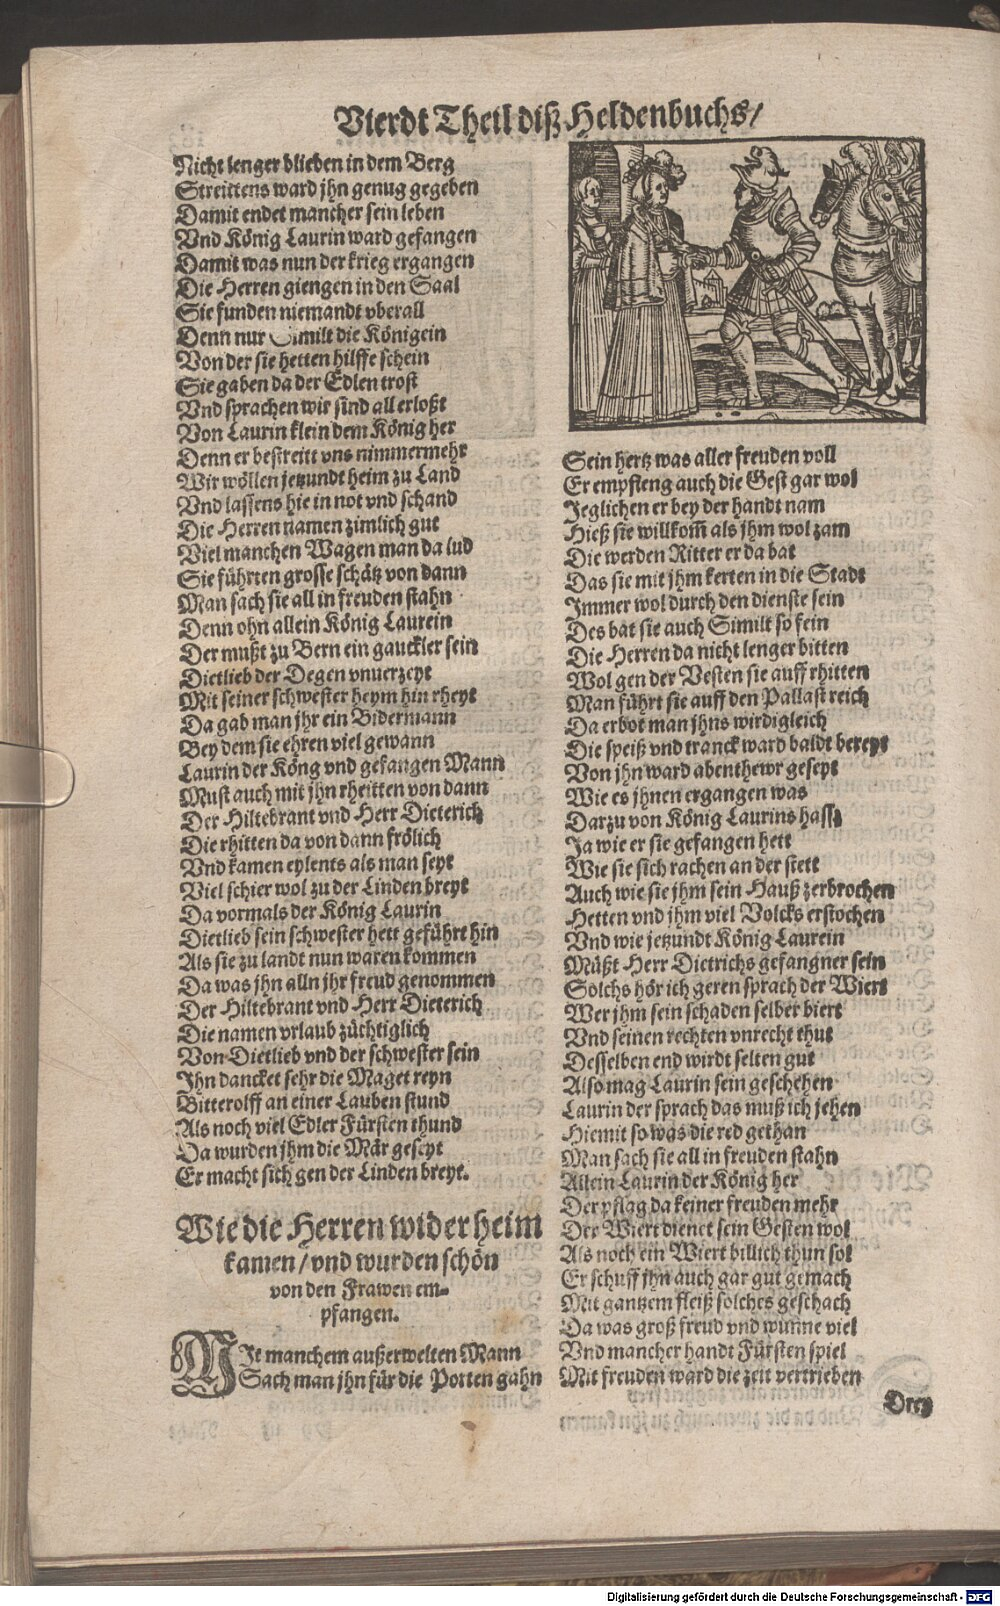 Vierdt Theil diß Heldenbuchs/
Nicht lenger blieben in dem Berg
Streittens ward jhn genug gegeben
Damit endet mancher sein leben
Vnd König Laurin ward gefangen
Damit was nun der krieg ergangen
Die Herren giengen in den Saal
Sie funden niemandt vberall
Denn nur Similt die Königein
Von der sie hetten hilffe schein
Sie gaben da der Edlen trost
Vnd sprachen wir sind all erloßt
Von Laurin klein dem König her
Denn er bestreitt vns nimmermehr
Wir wöllen jetzundt heim zu Land
Vnd lassens hie in not vnd schand
Die Herren namen zimlich gut
Viel manchen Wagen man da lud
Sie führten grosse schätz von dann
Man sach sie all in freuden stahn
Denn ohn allein König Laurein
Der mußt zu Bern ein gauckler sein
Dietlieb der Degen vnuerzeyt
Mit seiner schwester heym hin rheyt
Da gab man jhr ein Bidermann
Bey dem sie ehren viel gewann
Laurin der Köng vnd gefangen Mann
Must auch mit jhn rheitten von dann
Der Hiltebrant vnd Herr Dieterich
Die rhitten da von dann frölich
Vnd kamen eylents als man seyt
Viel schier wol zu der Linden breyt
Da vormals der König Laurin
Dietlieb sein schwester hett geführt hin
Als sie zu landt nun waren kommen
Da was jhn alln jhr freud genommen
Der Hiltebrant vnd Herr Dieterich
Die namen vrlaub züchtiglich
Von Dietlieb vnd der schwester sein
Jhn dancket sehr die Maget reyn
Bitterolff an einer Lauben stund
Als noch viel Edler Fürsten thund
Da wurden jhm die Mär geseyt
Er macht sich gen der Linden breyt.
Wie die Herren wider heim
kamen/ vnd wurden schön
von den Frawen em-
pfangen.
MJt manchem außerwelten Mann
Sach man jhn für die Porten gahn
Sein hertz was aller freuden voll
Er empfieng auch die Gest gar wol
Jeglichen er bey der handt nam
Hieß sie willkom̃ als jhm wol zam
Die werden Ritter er da bat
Das sie mit jhm kerten in die Stadt
Jmmer wol durch den dienste sein
Des bat sie auch Similt so fein
Die Herren da nicht lenger bitten
Wol gen der Vesten sie auff rhitten
Man führt sie auff den Pallast reich
Da erbot man jhns wirdigleich
Die speiß vnd tranck ward baldt bereyt
Von jhn ward abenthewr geseyt
Wie es jhnen ergangen was
Darzu von König Laurins hass
Ja wie er sie gefangen hett
Wie sie sich rachen an der stett
Auch wie sie jhm sein Hauß zerbrochen
Hetten vnd jhm viel Volcks erstochen
Vnd wie jetzundt König Laurein
Müßt Herr Dietrichs gefangner sein
Solchs hör ich geren sprach der Wiert
Wer jhm sein schaden selber biert
Vnd seinen rechten vnrecht thut
Desselben end wirdt selten gut
Also mag Laurin sein geschehen
Laurin der sprach das muß ich jehen
Hiemit so was die red gethan
Man sach sie all in freuden stahn
Allein Laurin der König her
Der pflag da keiner freuden mehr
Der Wiert dienet sein Gesten wol
Als noch ein Wiert billich thun sol
Er schuff jhn auch gar gut gemach
Mit gantzem fleiß solches geschach
Da was groß freud vnd wunne viel
Vnd mancher handt Fürsten spiel
Mit freuden ward die zeit vertrieben
Drey
Digitalisierung gefördert durch die Deutsche Forschungsgemeinschaft - DFG